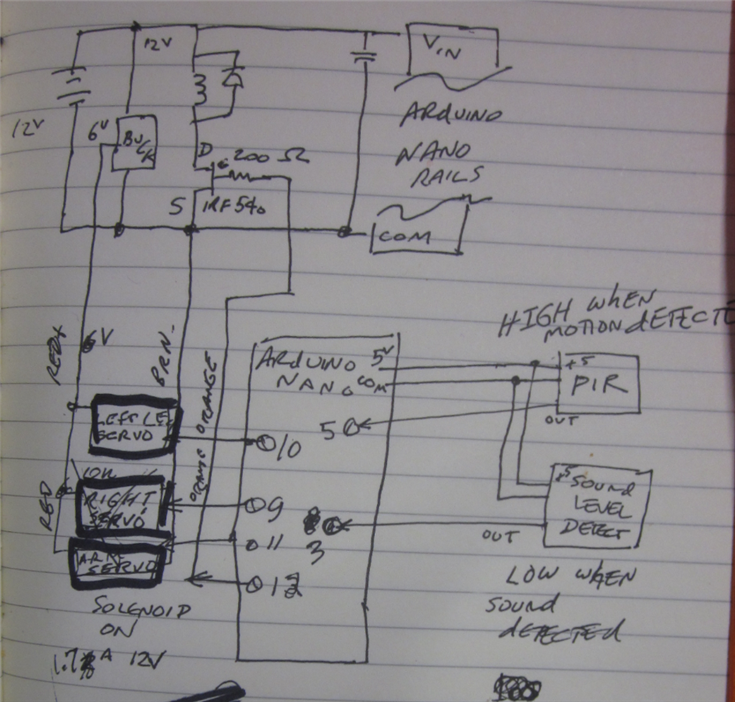 12V
VIN
12V
6V
BUCK
ARDUINO
NANO
RAILS
D
200 Ω
S
IRF540
COM
HIGH WHEN
MOTION DETECTE
RED+
6V
BRN-
ORANGE
ORANGE
ARDUINO 5V
NANO COM
+5
PIR
OUT
5
LEFT LEG
SERVO
10
RED
RIGHT
SERVO
9
+5
SOUND
LEVEL
DETECT
OUT
3
11
ARM
SERVO
12
SOLENOID
ON
A 12V
LOW WHEN
SOUND
DETECTED